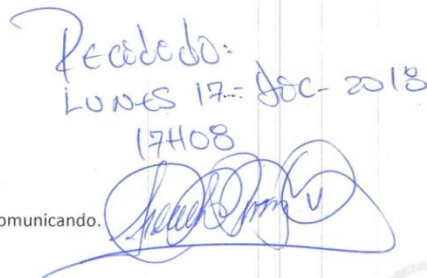 Recibido:
LUNES 17 - DIC - 2018
17H08
omunicando.